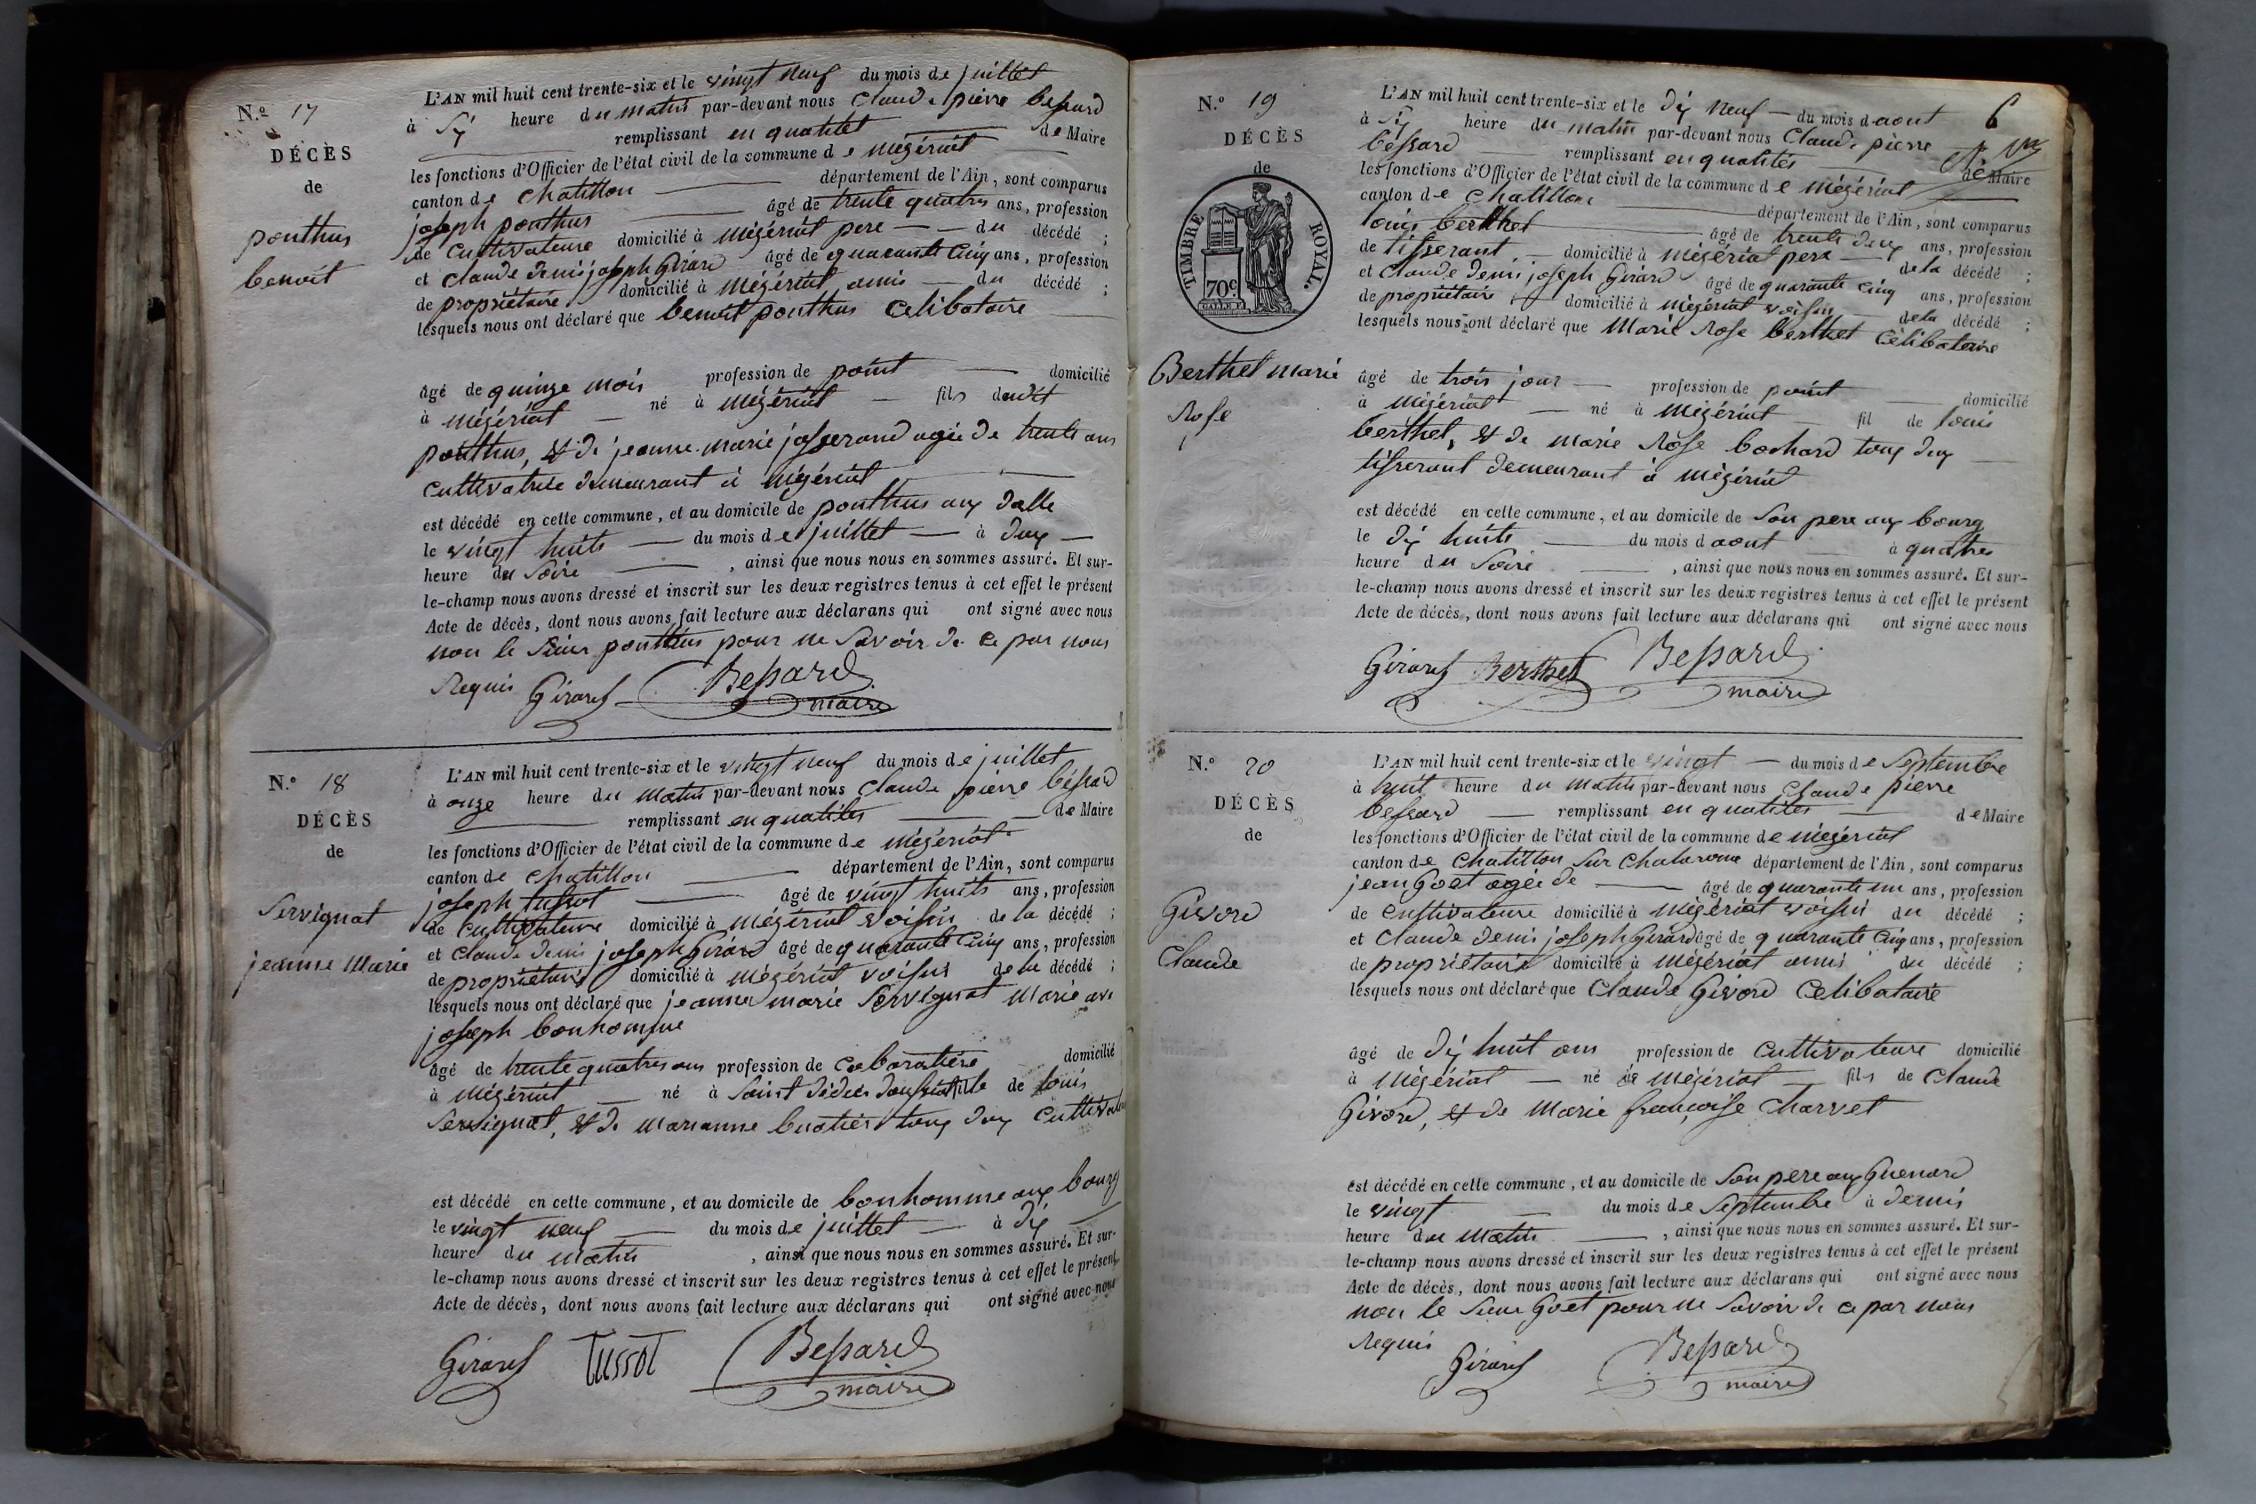 N.º 17
DÉCÈS
de
ponthus
benoit
L'AN mil huit cent trente-six et le vingt neuf du mois de juillet
à Six heure du matin par-devant nous Claude pierre bessard
remplissant en qualitet de Maire
les fonctions d'Officier de l'état civil de la commune de mézériat
canton de chatillon département de l'Ain, sont comparus
joseph ponthus âgé de trente quatres ans, profession
de Cultivateure domicilié à mézériat pere du décédé ;
et Claude denis joseph Girard âgé de quarante Cinq ans, profession
de propriétaire domicilié à mézériat amis du décédé ;
lesquels nous ont déclaré que benoit ponthus Celibataire
âgé de quinze mois profession de point domicilié
à mézériat né à mézériat fils dudit
ponthus, et de jeanne marie josserand agée de trente ans
cultivatrice demeurant à mézériat
est décédé en cette commune, et au domicile de ponthus aux
le vingt huits du mois de juillet à deux
heure du Soire , ainsi que nous nous en sommes assuré. Et sur-
le-champ nous avons dressé et inscrit sur les deux registres tenus à cet effet le présent
Acte de décès, dont nous avons fait lecture aux déclarans qui ont signé avec nous
non le Sieur ponthus pour ne Savoir de ce par nous
Requis Girard Bessard
maire
N.º 18
DÉCÈS
de
Servignat
jeanne Marie
L'AN mil huit cent trente-six et le vingt neuf du mois de juillet
à onze heure du matin par-devant nous Claude pierre béssard
remplissant en qualites de Maire
les fonctions d'Officier de l'état civil de la commune de mézériat
canton de chatillon département de l'Ain, sont comparus
joseph tussot âgé de vingt huits ans, profession
de Cultivateure domicilié à mézériat voisin de la décédé ;
et Claude denis joseph Girard âgé de quarante Cinq ans, profession
de propriétaire domicilié à mézériat voisin de la décédé ;
lesquels nous ont déclaré que jeanne marie Servignat Marié avec
joseph bonhomme
âgé de trente quatres ans profession de Cabaratiere domicilié
à mézériat né à Saint didier fille de louis
Servignat, et de marianne buatier tous deux
est décédé en cette commune, et au domicile de bonhomme aux bourg
le vingt neuf du mois de juillet à dix
heure du matin , ainsi que nous nous en sommes assuré. Et sur-
le-champ nous avons dressé et inscrit sur les deux registres tenus à cet effet le présent
Acte de décès, dont nous avons fait lecture aux déclarans qui ont signé avec nous
Girard Tussot Bessard
maire
N.º 19
DÉCÈS
de
TIMBRE ROYAL.
70c.
Berthet marie
Rose
6
L'AN mil huit cent trente-six et le dix neuf du mois d'aout
à Six heure du matin par-devant nous Claude pierre
bessard remplissant en qualités de Maire
les fonctions d'Officier de l'état civil de la commune de mézériat
canton de Chatillon département de l'Ain, sont comparus
louis berthet âgé de trente deux ans, profession
de tisserant domicilié à mézériat pere de la décédé ;
et Claude denis joseph Girard âgé de quarante Cinq ans, profession
de propriétaire domicilié à mézériat voisin de la décédé ;
lesquels nous ont déclaré que Marie Rose berthet Célibataire
âgé de trois jour profession de point domicilié
à mézériat né à mézériat fil de louis
berthet, et de marie Rose bochard tous deux
tisserant demeurant à mézériat
est décédé en cette commune, et au domicile de Son pere aux bourg
le dix huits du mois d aout à quatres
heure du Soire , ainsi que nous nous en sommes assuré. Et sur-
le-champ nous avons dressé et inscrit sur les deux registres tenus à cet effet le présent
Acte de décès, dont nous avons fait lecture aux déclarans qui ont signé avec nous
Girard Berthet Bessard
maire
N.º 20
DÉCÈS
de
Givord
Claude
L'AN mil huit cent trente-six et le vingt du mois de Septembre
à huit heure du matin par-devant nous Claude pierre
bessard remplissant en qualites de Maire
les fonctions d'Officier de l'état civil de la commune de mézériat
canton de Chatillon Sur Chalaronne département de l'Ain, sont comparus
jean Goet agée de âgé de quarante un ans, profession
de Cultivateure domicilié à mézériat voisin du décédé ;
et Claude denis joseph Girard âgé de quarante Cinq ans, profession
de propriétaire domicilié à mézériat amis du décédé ;
lesquels nous ont déclaré que Claude Givord Celibataire
âgé de dix huit ans profession de cultivateure domicilié
à mézériat né à mézériat fils de Claude
Givord, et de Marie françoise Charvet
est décédé en cette commune, et au domicile de Son pere aux Guenard
le vingt du mois de Septembre à demis
heure du matin , ainsi que nous nous en sommes assuré. Et sur-
le-champ nous avons dressé et inscrit sur les deux registres tenus à cet effet le présent
Acte de décès, dont nous avons fait lecture aux déclarans qui ont signé avec nous
non le Sieur Goet pour ne Savoir de ce par nous
Requis
Girard Bessard
maire